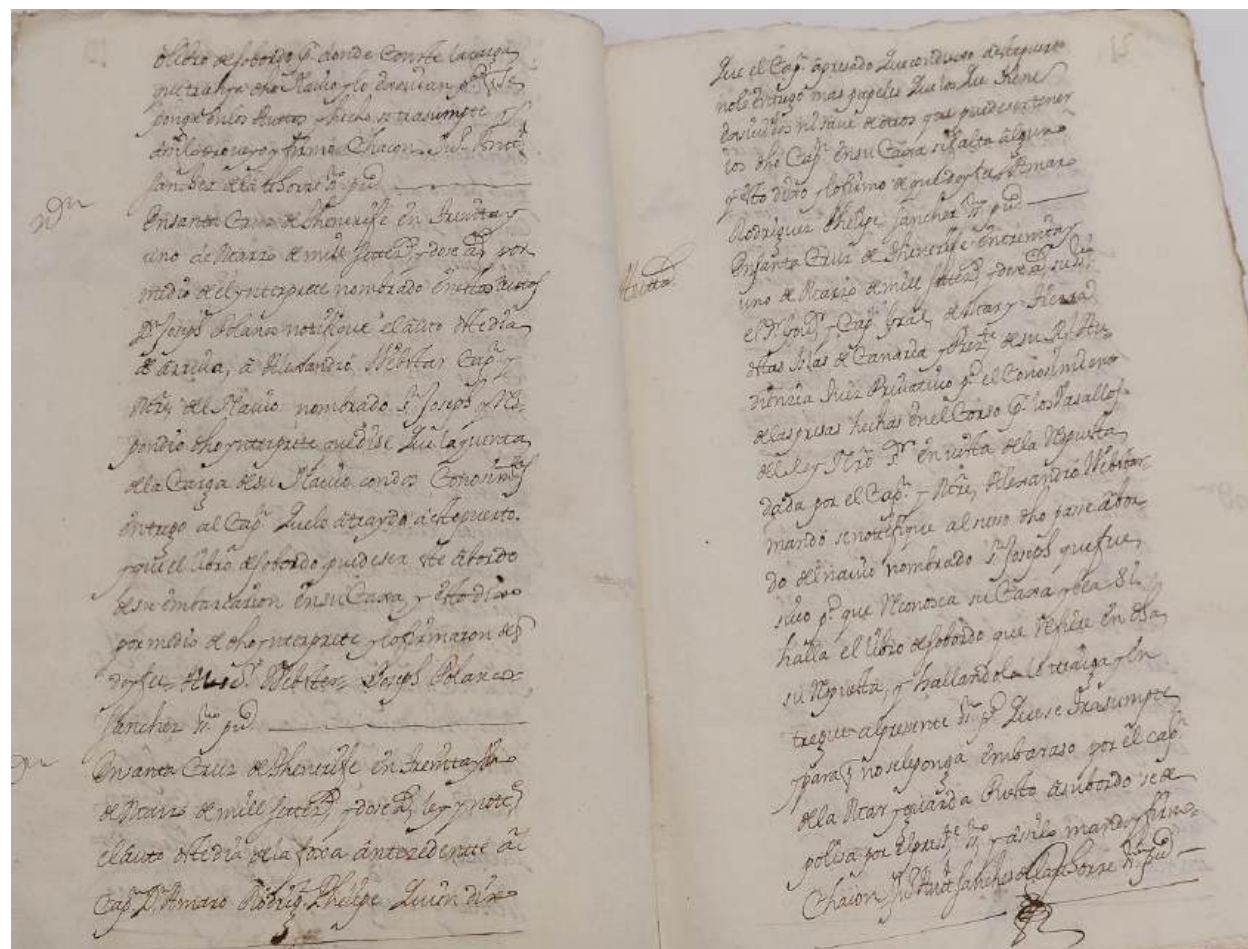 o libro de sobordo p.r donde conste la carga
que trahya dho Navio y lo
ponga en los Autos y hecho se trasumpte
asi lo proveyo y firmo Chacon
Sanchez de la Thorre ss.no pu.co
En Santa Cruz de Thenerife en treinta y
uno de Marzo de mill settez.s y dose a.s por
medio de el ynterprete nombrado en estos autos
D.n Joseph Polanco notifique el auto de media
de arriva, a Alexandro Webstar Cap.n y
Mtre, del Navio nombrado S.n Joseph y res-
pondio dho ynterprete que dise que la quenta
de la Carga de su Navio con dos Conosim.tos
entrego al Cap.n que lo a traydo a este puerto.
y que el libro de sobordo puede ser este abordo
de su embarcacion en su Caxa, y esto dixo
por medio de dho ynterprete y lo firmaron de q
doy fee= Webster= Joseph Polanco=
Sanchez ss.no pu.co
En Santa Cruz de Thenerife en treinta y uno
de Marzo de mill settez.s y dose a.s ley y note.
el auto de media de la foxa antezedente al
Cap.n D.n Amaro Rodrig.z Phelipe quien dixo
21
que el Cap.n apresado que condujo a este puerto
no le entrego mas papeles que los que tiene
exsividos ni save de otros que puede ser tener
los dho Cap.n en su Caxa si falta alguno
y esto dixo y lo firmo de que doy fee= Amaro
Rodriguez Phelipe Sanchez ss.no pu.co
En Santa Cruz de Thenerife en treinta y
uno de Marzo de mill settez.s y dose a.s su s.a
el S.r Gov.r y Cap.n Gral, de Mar y Tierra
destas Islas de Canaria y Prez.te de su Rl Au-
diencia Juez Privativo p.a el Conosimiento
de las presas hechas en el Corso p.r los Vasallos
del Rey Nro S.r en vista de la Repuesta
dada por el Cap.n y Mtre, Alexandro Webstar
mando se notifique al suso dho passe abor-
do del navio nombrado S.n Joseph que fue
suio p.a que reconosca su Caxa y vea si
halla el libro de sobordo que refiere en dha
su Repuesta, y hallandole lo traiga y en
tregue al presente ss.no p.a que se trasumpte
y para q no se le ponga embaraso por el cap.n
de la Mar y guarda Puesto a su bordo se de
polisa por el pres.te ss.no y asi lo mando y firmo=
Chacon Sanchez de la Thorre ss.no pu.co